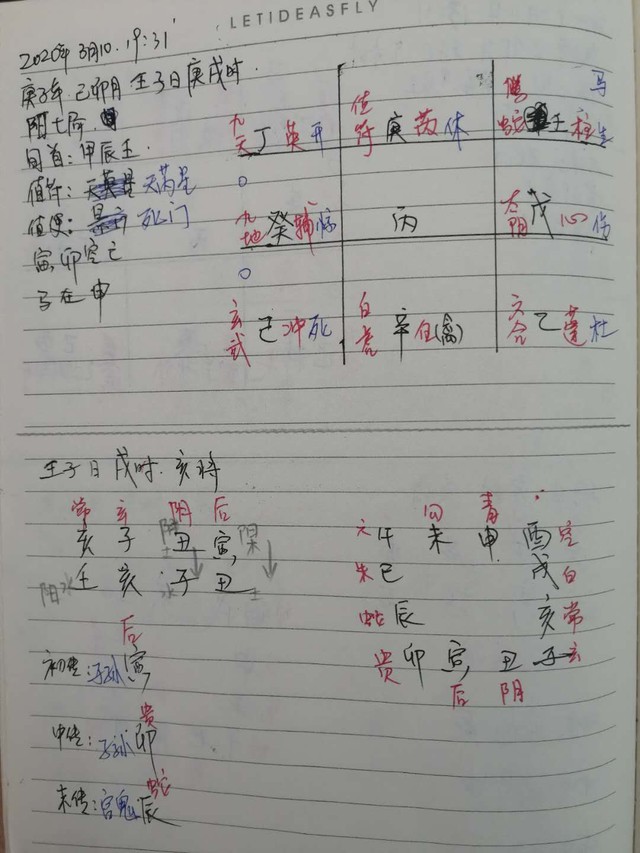 LETIDEASFLY
2020年3月10.19:31
庚子年 己卯月 壬子日 庚戌时.
阳七局.
旬首:甲辰壬.
值符: 天芮星
值使: 死门
寅,卯空亡
马在申
九天 丁 英 开
值符 庚 芮 休
螣蛇 壬 柱 生 马
九地 癸 辅 惊
丙
太阴 戊 心 伤
玄武 己 冲 死
白虎 辛 任(禽)
六合 乙 蓬 杜
壬子日 戌时. 亥将
常 玄 阴 后
亥 子 丑 寅,
壬 亥 子 丑
阳水 水 土
后
初传:子孙寅,
贵
中传:子孙卯
蛇
末传:官鬼辰
勾 青
六午 未 申 酉空
朱巳 戌白
蛇辰 亥常
贵卯 寅, 丑 子玄
后 阴